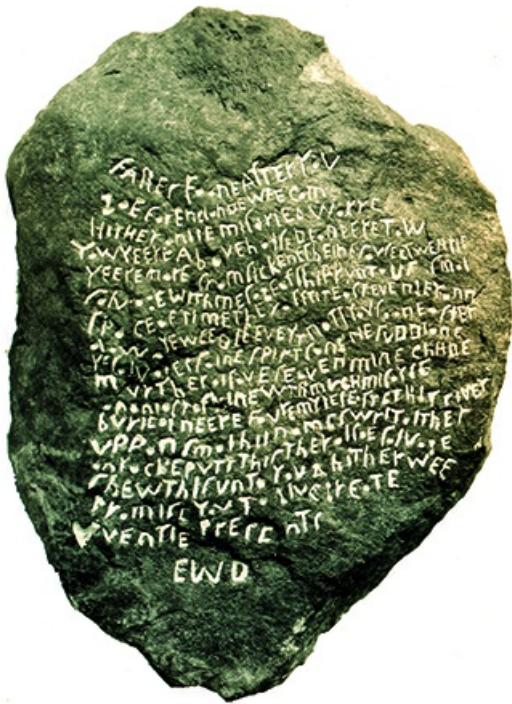 FATHER SOONE AFTER YOV
GOE FOR ENGLANDE WEE CAM
HITHER ONLIE MISARIE & WARRE
TOW YEERE ABOVE HALFE DEADE ERE TOW
YEERE MORE FROM SICKENES BEINE FOVRE & TWENTIE
SALVAGE WITH MESAGE OF SHIPP VNTO US SMAL
SPACE OF TIME THEY AFFRITE OF REVENGE RANN
AL AWAYE WEE BLEEVE YT NOTT YOV SOONE AFTER
YE SALVAGES FAINE SPIRTS ANGRIE SUDDIANE
MVRTHER AL SAVE SEAVEN MINE CHILDE
ANANIAS TO SLAINE WTH MVCH MISARIE
BVRIE AL NEERE FOVRE MYLES EASTE THIS RIVER
VPPON SMAL HIL NAMES WRIT AL THER
ON ROCKE PVTT THIS THER ALSOE SALVAGE
SHEW THIS VNTO YOV & HITHER WEE
PROMISE YOV TO GIVE GREATE
PLENTIE PRESENTS
EWD